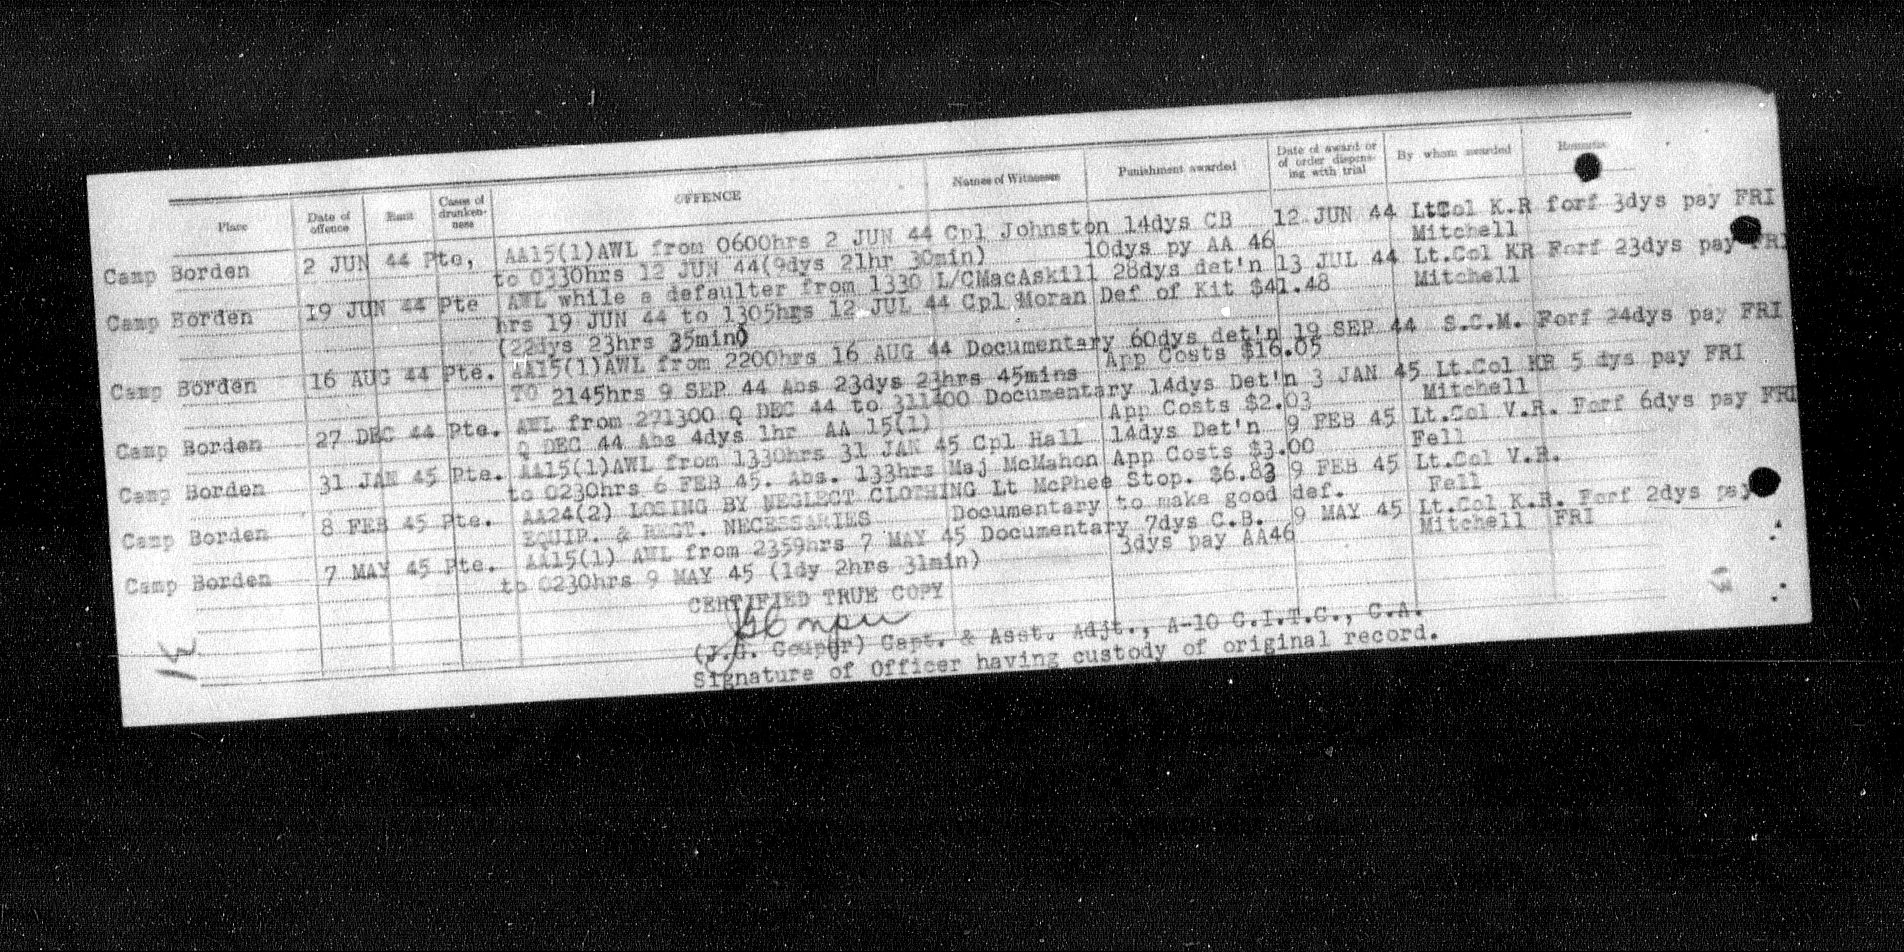 Place Date of offence Rank Cases of drunken-ness OFFENCE Names of Witnesses Punishment awarded Date of award or of order dispens-ing with trial By whom awarded Remarks
Camp Borden 2 JUN 44 Pte, AA15(1)AWL from 0600hrs 2 JUN 44 Cpl Johnston 14dys CB 12 JUN 44 Lt.Col K.R forf 3dys pay FRI
to 0330hrs 12 JUN 44(9dys 21hr 30min) 10dys py AA 46 Mitchell
Camp Borden 19 JUN 44 Pte AWL while a defaulter from 1330 L/CMacAskill 28dys det'n 13 JUL 44 Lt.Col KR Forf 23dys pay FRI
hrs 19 JUN 44 to 1305hrs 12 JUL 44 Cpl Moran Def of Kit $41.48 Mitchell
(22dys 23hrs 35min)
Camp Borden 16 AUG 44 Pte. AA15(1)AWL from 2200hrs 16 AUG 44 Documentary 60dys det'n 19 SEP 44 S.C.M. Forf 24dys pay FRI
TO 2145hrs 9 SEP 44 Abs 23dys 23hrs 45mins App Costs $16.05
Camp Borden 27 DEC 44 Pte. AWL from 271300 Q DEC 44 to 311400 Documentary 14dys Det'n 3 JAN 45 Lt.Col KR 5 dys pay FRI
Q DEC 44 Abs 4dys 1hr AA 15(1) App Costs $2.03 Mitchell
Camp Borden 31 JAN 45 Pte. AA15(1)AWL from 1330hrs 31 JAN 45 Cpl Hall 14dys Det'n 9 FEB 45 Lt.Col V.R. Forf 6dys pay FRI
to 0230hrs 6 FEB 45. Abs. 133hrs Maj McMahon App Costs $3.00 Fell
Camp Borden 8 FEB 45 Pte. AA24(2) LOSING BY NEGLECT CLOTHING Lt McPhee Stop. $6.83 9 FEB 45 Lt.Col V.R.
EQUIP. & REGT. NECESSARIES Documentary to make good def. Fell
Camp Borden 7 MAY 45 Pte. AA15(1) AWL from 2359hrs 7 MAY 45 Documentary 7dys C.B. 9 MAY 45 Lt.Col K.R. Forf 2dys pay
to 0230hrs 9 MAY 45 (1dy 2hrs 31min) 3dys pay AA46 Mitchell FRI
CERTIFIED TRUE COPY
(J.G. Couper) Capt. & Asst. Adjt., A-10 C.I.T.C., C.A.
Signature of Officer having custody of original record.